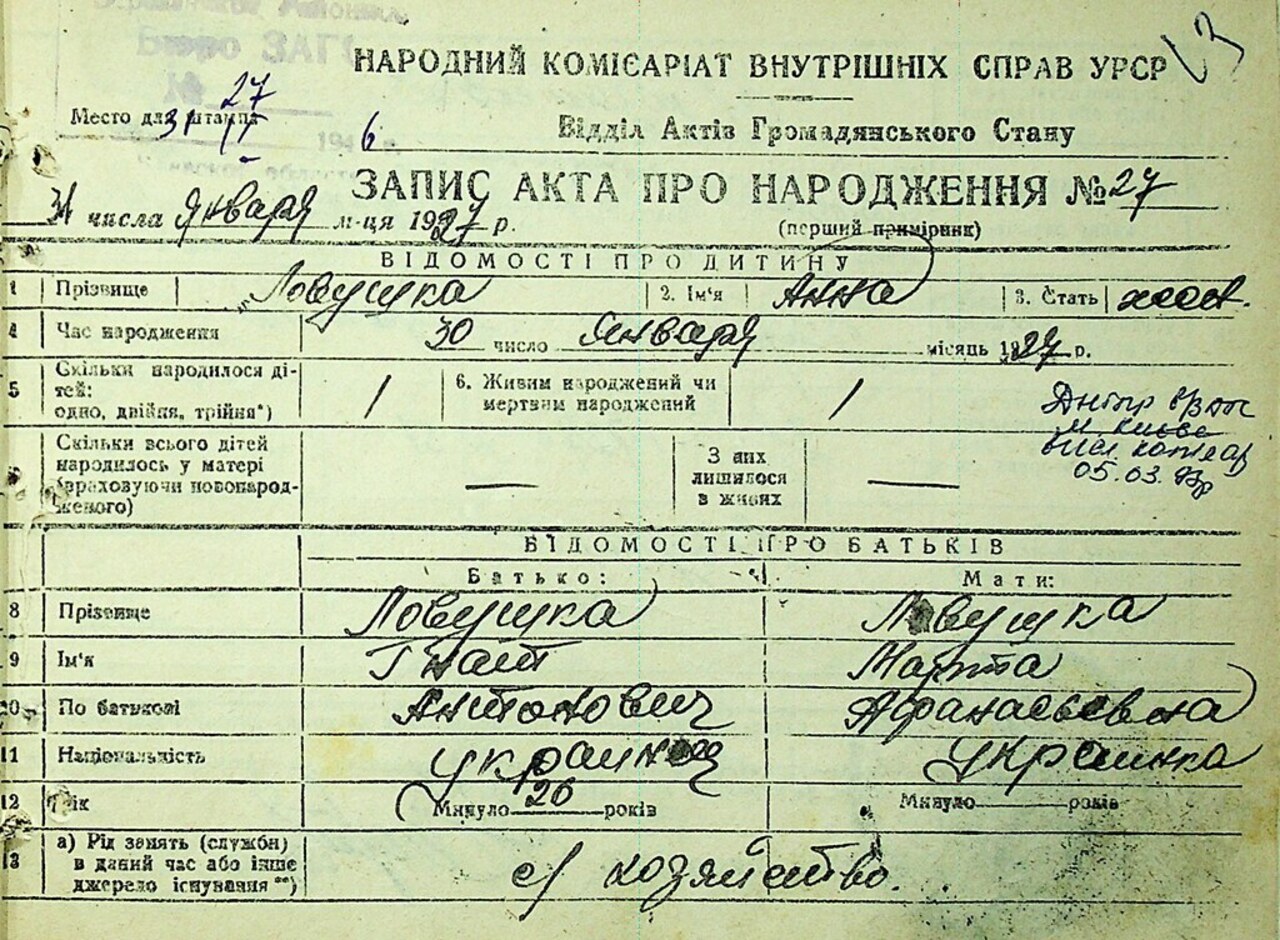 Бюро ЗАГС
НАРОДНИЙ КОМІСАРІАТ ВНУТРІШНІХ СПРАВ УРСР
27
Место для штампа
31 1946 г.
Відділ Актів Громадянського Стану
ЗАПИС АКТА ПРО НАРОДЖЕННЯ №27
31 числа января м-ця 1927 р.
(перший примірник)
ВІДОМОСТІ ПРО ДИТИНУ
1 Прізвище Ловушка 2. Ім'я Анна 3. Стать женск.
4 Час народження 30 число Января місяць 1927 р.
5 Скільки народилося ді-
тей:
одно, двійня, трійня*) 1
6. Живим народжений чи
мертвим народжений 1
Днепр
м Киева
05.03.
Скільки всього дітей
народилось у матері
(враховуючи новонарод-
женого) —
З них
лишилося
в живих —
ВІДОМОСТІ ПРО БАТЬКІВ
Батько: Мати:
8 Прізвище Ловушка Ловушка
9 Ім'я Гнат Марта
10 По батькові Антонович Афанасьевна
11 Національність украинец украинка
12 Вік Минуло 26 років Минуло років
13 а) Рід занять (служби)
в даний час або інше
джерело існування **) с/хозяйство.